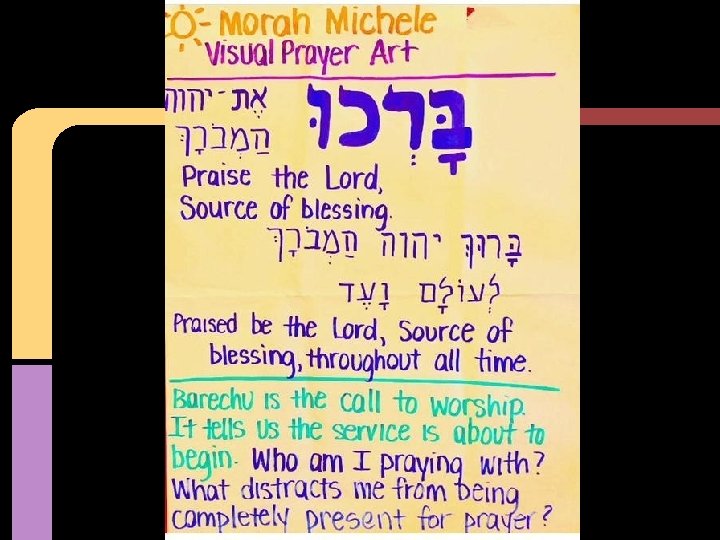 Morah Michele
Visual Prayer Art
בָּרְכוּ אֶת-יהוה
הַמְבֹרָךְ
Praise the Lord,
Source of blessing.
בָּרוּךְ יהוה הַמְבֹרָךְ
לְעוֹלָם וָעֶד
Praised be the Lord, Source of
blessing, throughout all time.
Barechu is the call to worship.
It tells us the service is about to
begin. Who am I praying with?
What distracts me from being
completely present for prayer?